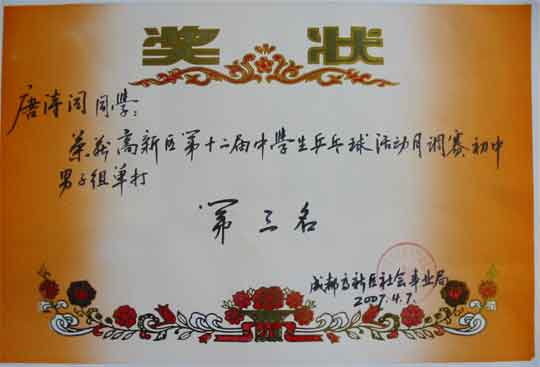 奖状
唐涛阅同学:
荣获高新区第十二届中学生乒乓球活动月调赛初中
男子组单打
第三名
成都高新区社会事业局
2007.4.7.